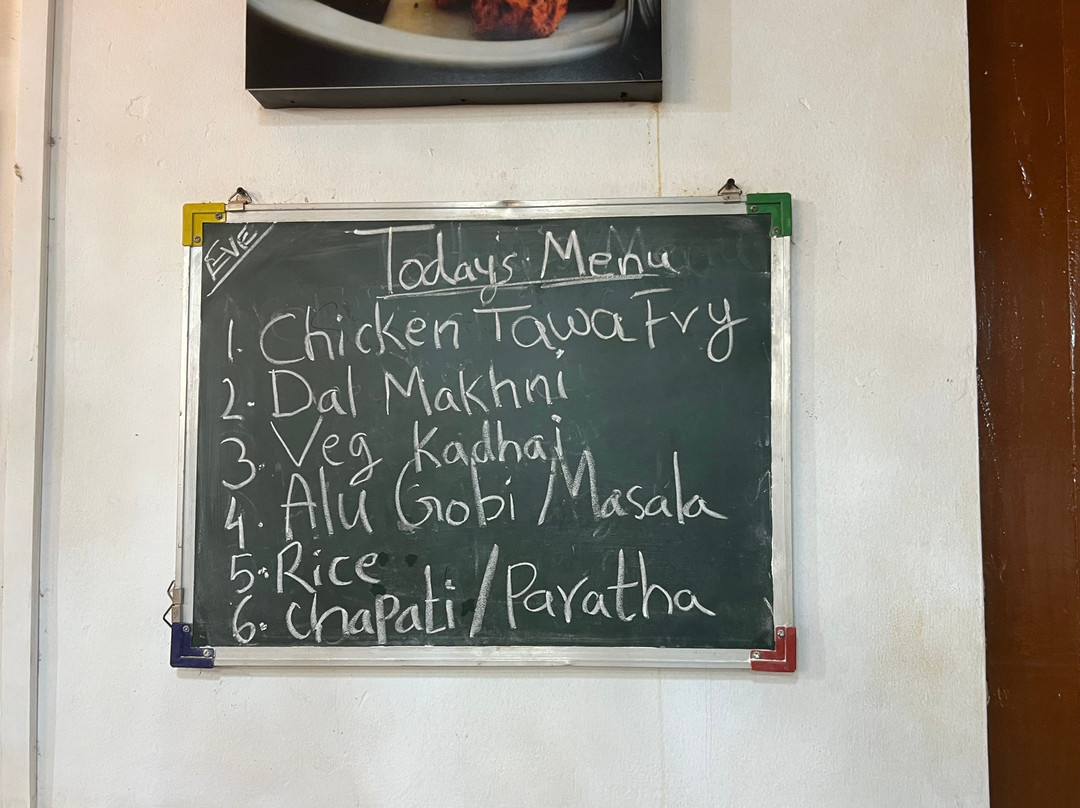 EVE
Todays Menu
1. Chicken Tawa Fry
2. Dal Makhni
3. Veg Kadhai
4. Alu Gobi Masala
5. Rice
6. Chapati/Paratha